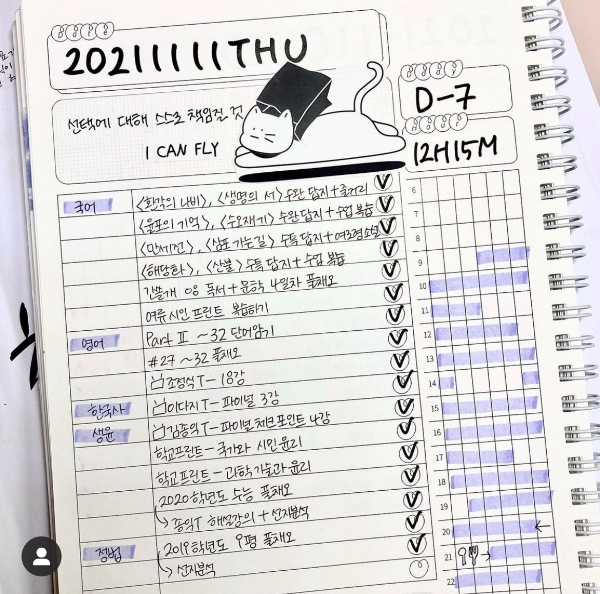 20211111THU
D-7
선택에 대해 스스로 책임질 것
I CAN FLY
12H15M
국어
<환각의 나비>, <생명의 서> 수완 답지+줄거리
<윤포의 기억>, <수오재기> 수완 답지+수업 복습
<만세전>, <삼포 가는 길> 수특 답지+
<해당화>, <산불> 수특 답지+수업 복습
간쓸개 08 독서+문학 4일차 풀채오
여류 시인 프린트 복습하기
영어
Part Ⅱ ~32 단어암기
#27 ~32 풀채오
조정식T- 18강
한국사
이다지T- 파이널 3강
생윤
김종익T- 파이널 체크포인트 4강
학교프린트- 국가와 시민 윤리
학교프린트- 과학기술과 윤리
2020학년도 수능 풀채오
↳ 종익T 해설강의 + 선지분석
정법
2019학년도 9평 풀채오
↳ 선지분석
6
7
8
9
10
11
12
13
14
15
16
17
18
19
20
21
22